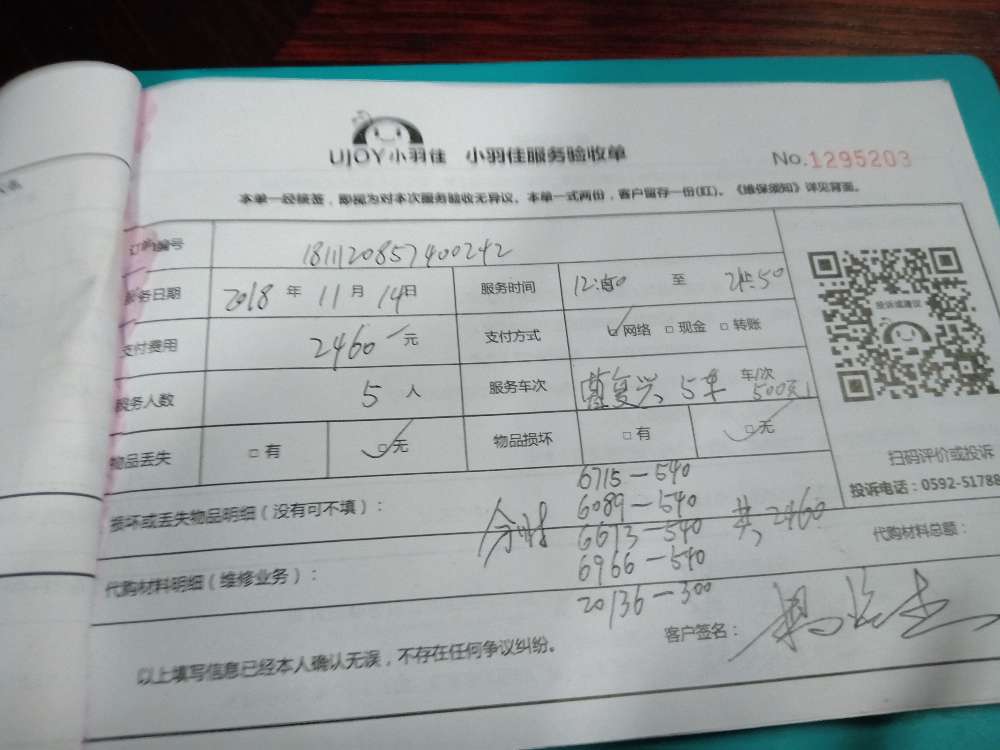 UJOY小羽佳 小羽佳服务验收单
No.1295203
本单一经核签，即视为对本次服务验收无异议。本单一式两份，客户留存一份(红)。《维保须知》详见背面。
订购编号 1811120857400242
服务日期 2018 年 11 月 14日 服务时间 至
支付费用 2460 元 支付方式 网络 现金 转账
投诉或建议
服务人数 5 人 服务车次 复兴、5车 车/次
物品丢失 有 无 物品损坏 有 无
扫码评价或投诉
投诉电话：0592-51788
损坏或丢失物品明细（没有可不填）：
6715-540
6089-540
6613-540
6966-540
20136-300
共2460
代购材料明细（维修业务）：
代购材料总额：
以上填写信息已经本人确认无误，不存在任何争议纠纷。
客户签名：